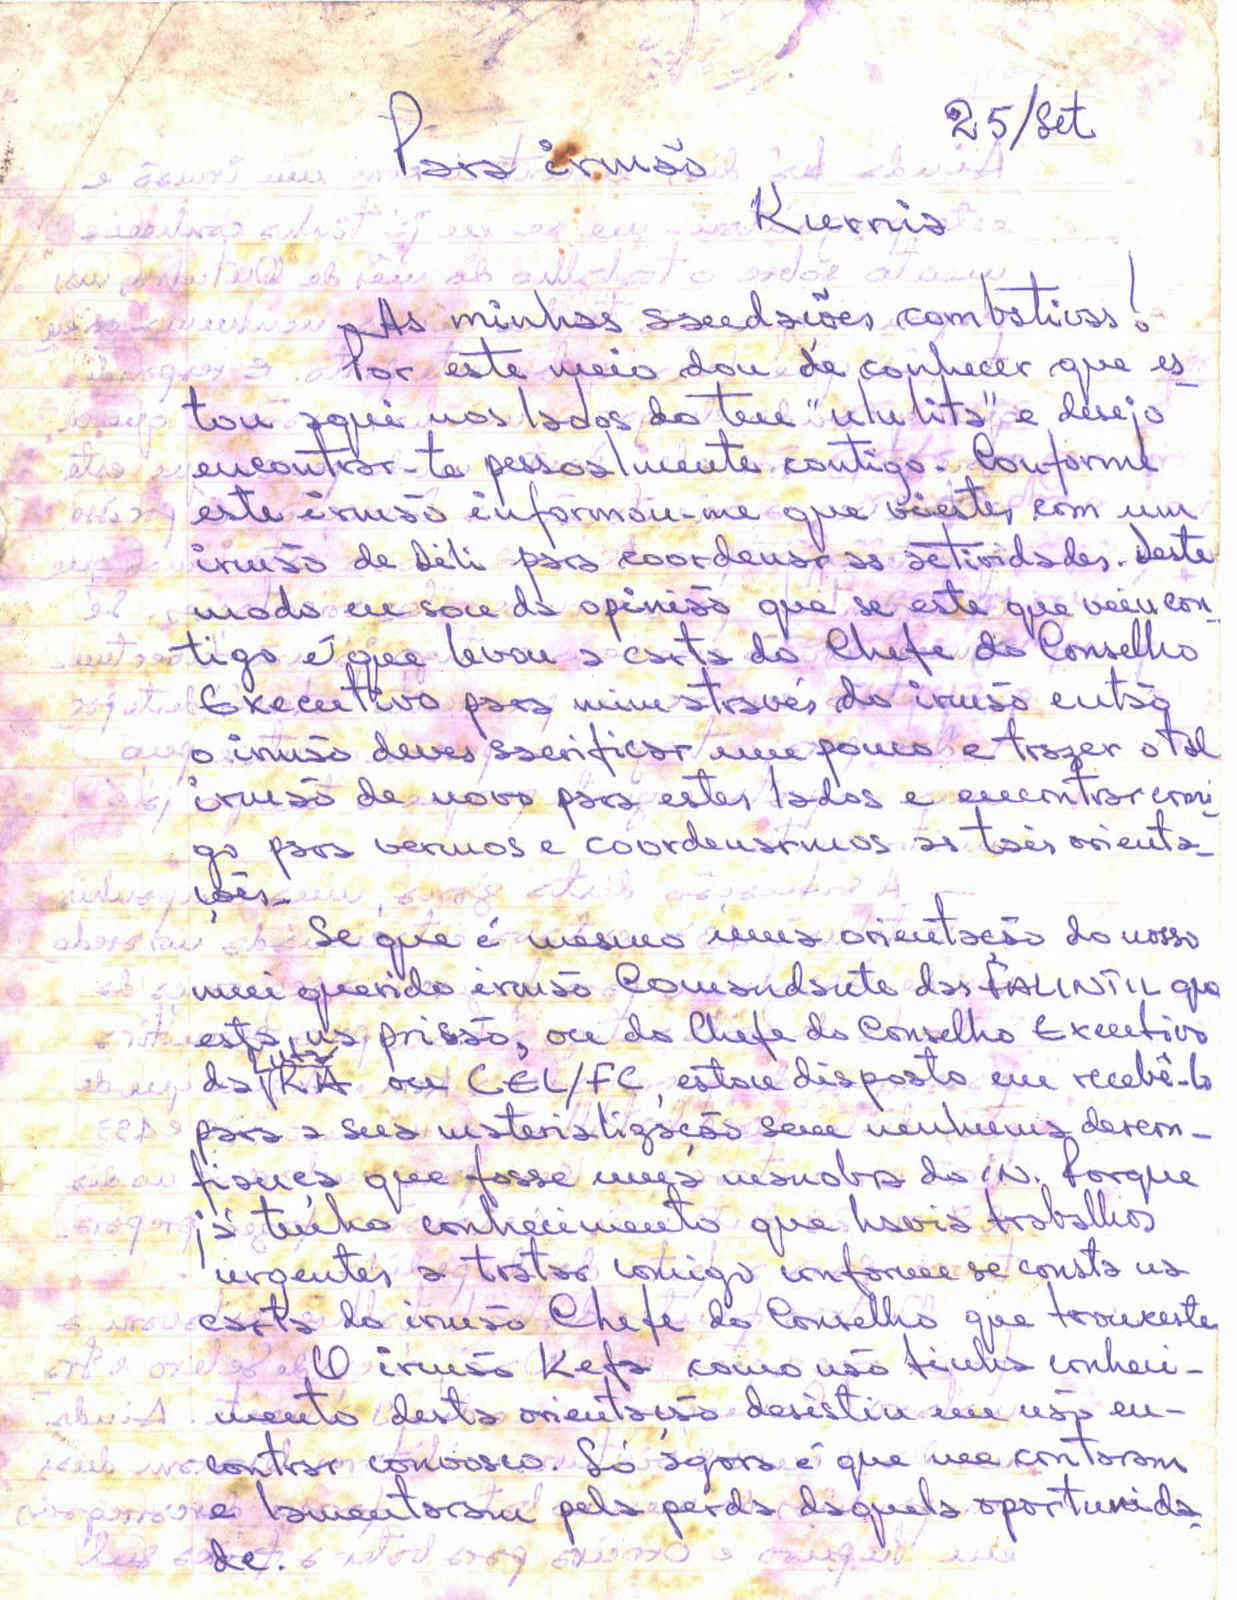 25/Set
Para irmão
Kurnia
As minhas saudações combativas!
Por este meio dou de conhecer que es-
tou aqui nos lados do teu "ululita" e desejo
encontrar-te pessoalmente contigo. Conforme
este irmão informou-me que viestes com um
irmão de Dili para coordenar as actividades. Deste
modo eu sou da opinião que se este que veiu con-
tigo é que levou a carta do Chefe do Conselho
Executivo para mim através do irmão então
o irmão deves sacrificar um pouco e trazer o tal
irmão de novo para estes lados e encontrar comi-
go para vermos e coordenarmos as tais orienta-
ções.
Se que é mesmo uma orientação do nosso
mui querido irmão Comandante das FALINTIL que
está na prisão, ou do Chefe do Conselho Executivo
da Luta/RA ou CEL/FC, estou disposto em recebê-lo
para a sua materialização sem nenhuma descon-
fiança que fosse uma manobra do IN. Porque
já tenho conhecimento que havia trabalhos
urgentes a tratar comigo conforme se consta na
carta do irmão Chefe do Conselho que trouxeste
O irmão Kefa como não tinha conheci-
mento desta orientação desistiu em não en-
contrar convosco. Só agora é que me contaram
e lamentaram pela perda daquela oportunida-
de.